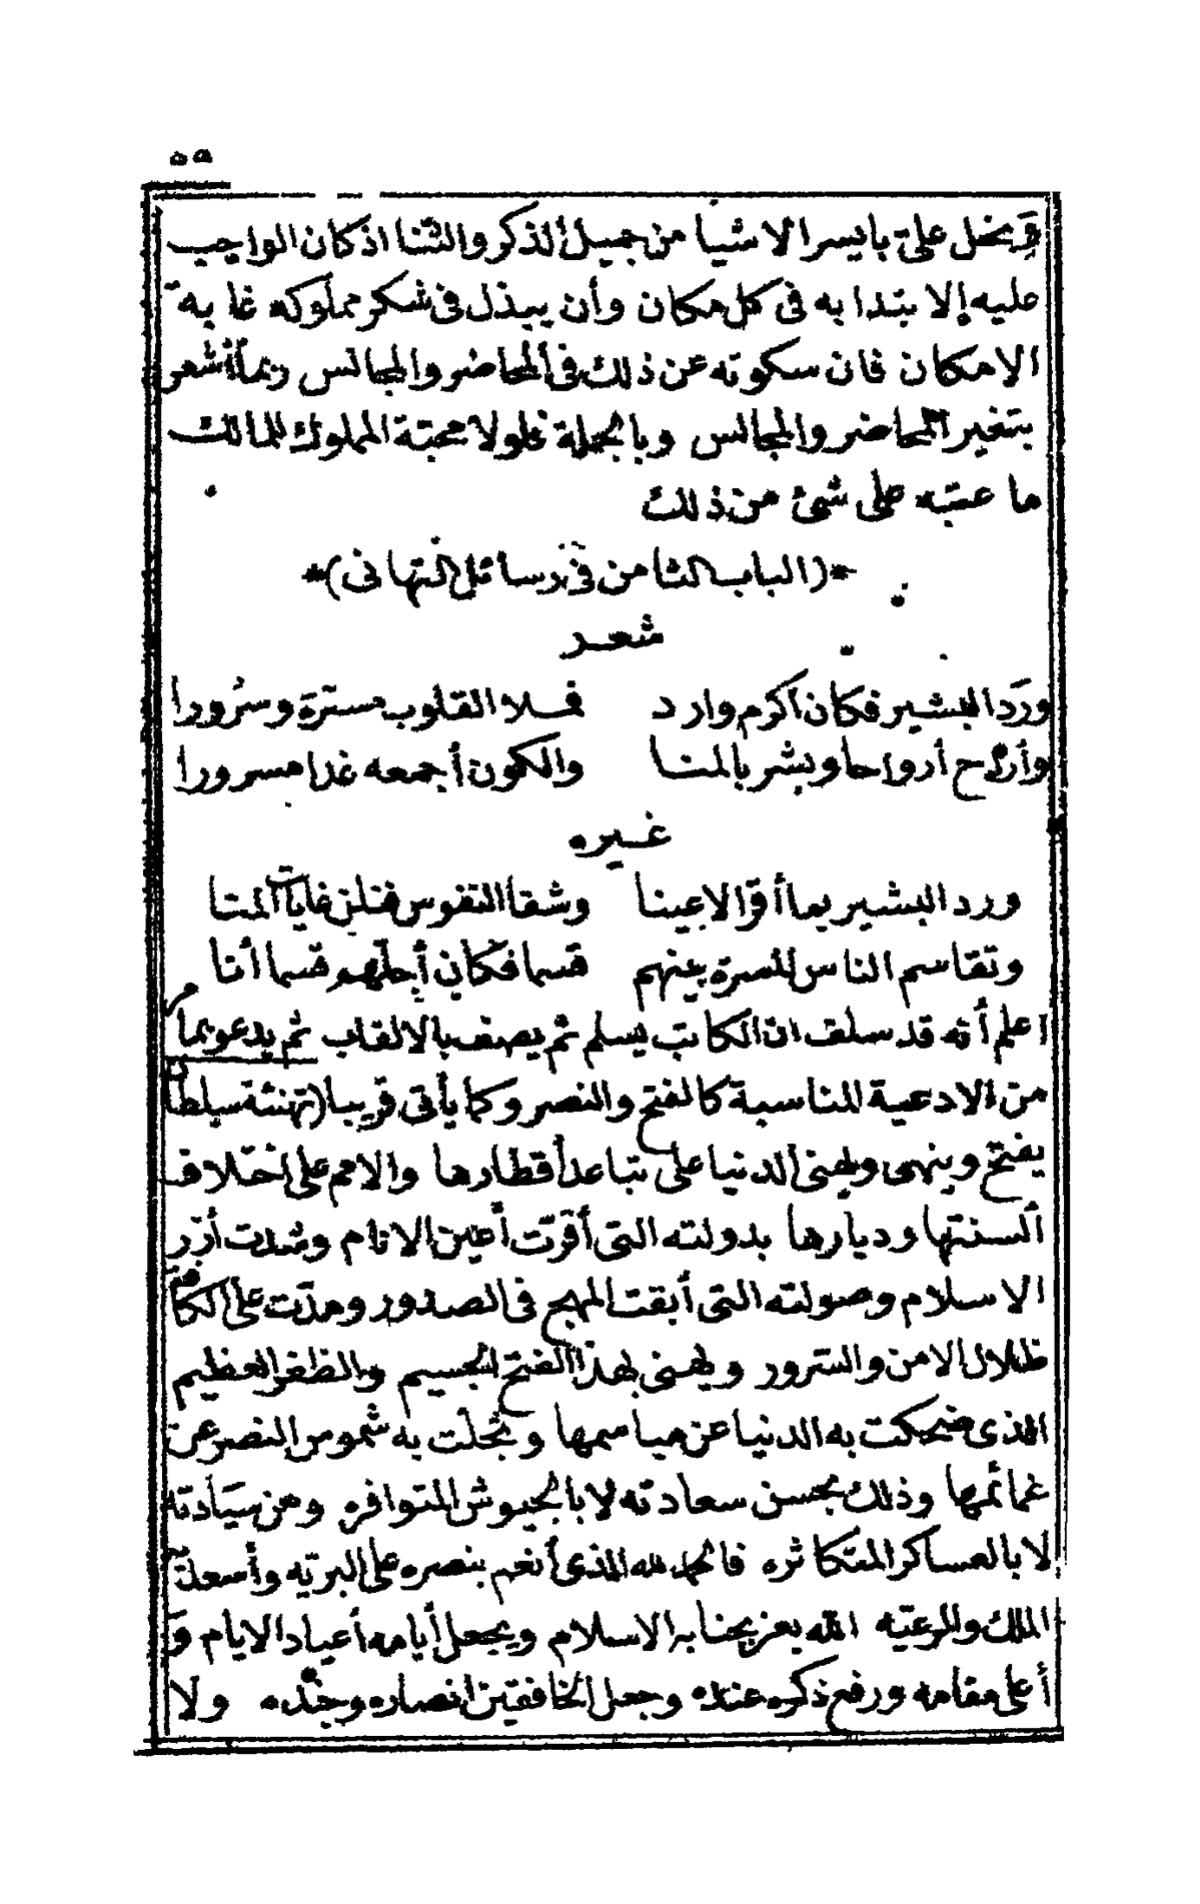 ٥٩
وبخل على بايسر الاشيا من جميل الذكر والثنا اذ كان الواجب
عليه إلا بتدا به فى كل مكان وأن يبذل فى شكر مملوكه غا ية
الامكان فان سكوته عن ذلك فى المحاضر والمجالس ربما أشعر
بتغير المحاضر والمجالس وبالجملة فلولا محبة المملوك للمالك
ما عتبه على شئ من ذلك
*(الباب الثامن فى رسائل التهانى)*
شعر
ورد البشير فكان اكرم وارد فملا القلوب مسترة وسرورا
وأراح أرواحا وبشر بالمنا والكون أجمعه غدا مسرورا
غيره
ورد البشير بما أقر الاعينا وشفا النفوس فنلن غايات المنا
وتقاسم الناس المسرة بينهم قسما فكان أجلهم قسما أنا
اعلم أنه قد سلف ان الكاتب يسلم ثم يصف بالالقاب ثم يدعو بما مر
من الادعية المناسبة كالفتح والنصر وكما يأتى قريبا (تهنئة سلطان
بفتح) وينهى ويهنى الدنيا على تباعد أقطارها والامم على اختلاف
ألسنتها وديارها بدولته التى أقرت أعين الانام وشدت أزر
الاسلام وصولته التى أبقت المهج فى الصدور ومدت على الكافة
ظلال الامن والسرور ويهنى بهذا الفتح الجسيم والظفر العظيم
الذى ضحكت به الدنيا عن مباسمها وتجلت به شموس النصر عن
غمائمها وذلك بحسن سعادته لا بالجيوش المتوافره ومن سيادته
لا بالعساكر المتكاثره فالحمد لله الذى أنعم بنصره على البريه وأسعد
الملك والرعيه الله يعز بجنابه الاسلام ويجعل أيامه أعياد الايام و
أعلى مقامه ورفع ذكره عنده وجعل الخافقين انصاره وجنده ولا